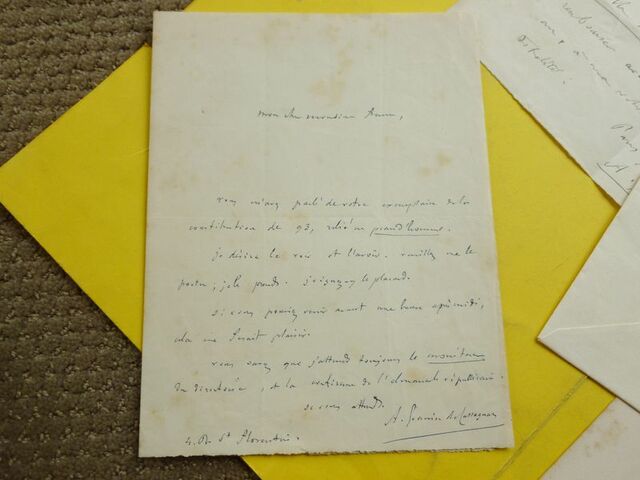 mon cher monsieur
vous m'avez parlé de votre exemplaire de la
constitution de 93, relié en grand'homme.
je désire le voir et l'avoir. veuillez me le
porter; je le prends. j'y joignez le placard.
si vous pouviez venir avant une heure après midi,
cela me ferait plaisir.
vous savez que j'attends toujours le moniteur
du directoire, et la de l'almanach républicain.
je vous attends.
A. Granier de Cassagnac
4. St Florentin.